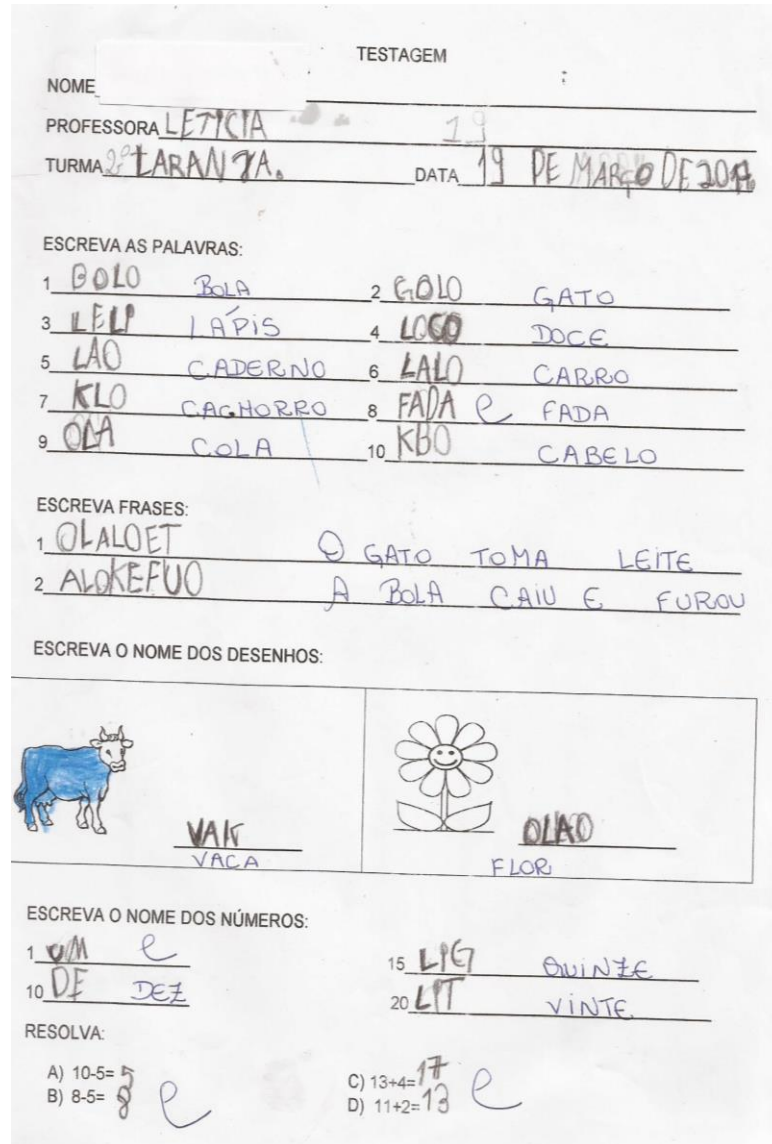 TESTAGEM
NOME
PROFESSORA LETICIA 19
TURMA 2º LARANJA. DATA 19 DE MARÇO DE
ESCREVA AS PALAVRAS:
1 BOLO BOLA 2 GOLO GATO
3 LELI LÁPIS 4 LOCO DOCE
5 LAO CADERNO 6 LALO CARRO
7 KLO CACHORRO 8 FADA C FADA
9 OLA COLA 10 KBO CABELO
ESCREVA FRASES:
1 OLALOET O GATO TOMA LEITE
2 ALOKEFUO A BOLA CAIU E FUROU
ESCREVA O NOME DOS DESENHOS:
VAK OLAO
VACA FLOR
ESCREVA O NOME DOS NÚMEROS:
1 UM C 15 LIG QUINZE
10 DE DEZ 20 LIT VINTE
RESOLVA:
A) 10-5= 5 C) 13+4= 17
B) 8-5= C D) 11+2= 13 C